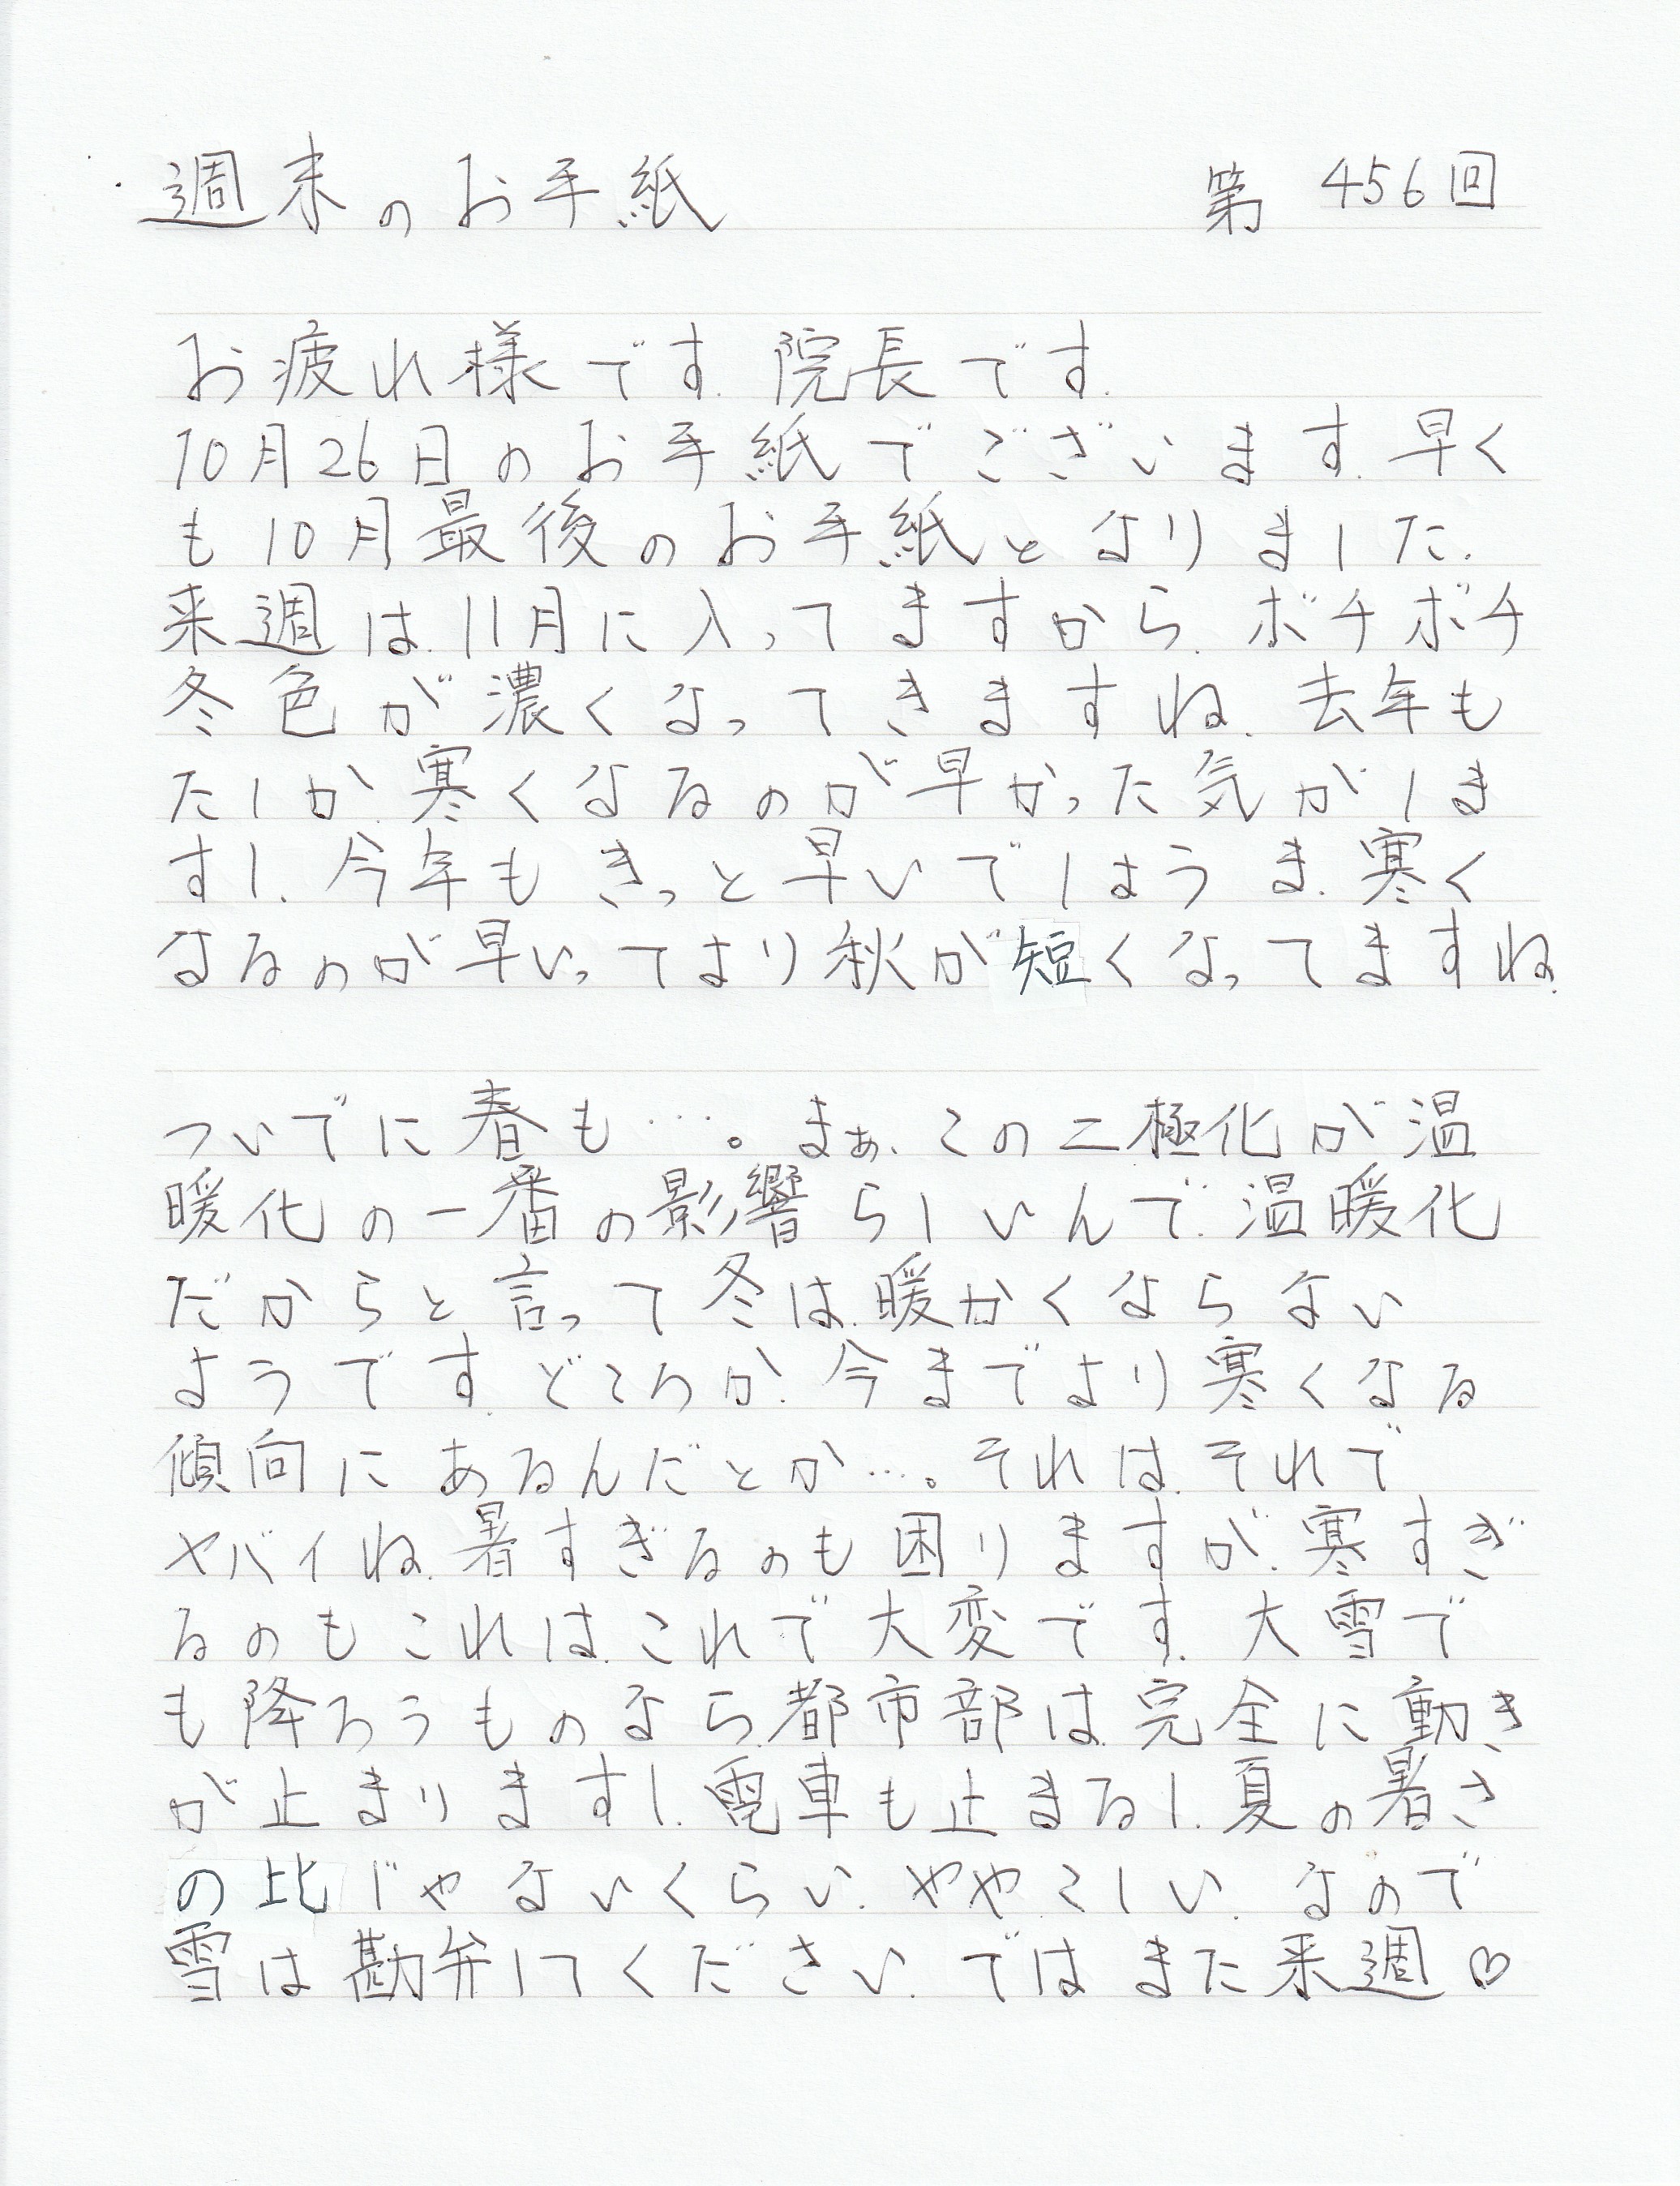 週末のお手紙 第456回
お疲れ様です.院長です.
10月26日のお手紙でございます.早く
も10月最後のお手紙となりました.
来週は.11月に入ってますから.ボチボチ
冬色が濃くなってきますね.去年も
たしか.寒くなるのが早かった気がしま
すし.今年もきっと早いでしょうま.寒く
なるのが早いってより秋が短くなってますね.
ついでに春も…。まぁ、この二極化が温
暖化の一番の影響らしいんで.温暖化
だからと言って冬は.暖かくならない
ようです.どころか.今までより寒くなる
傾向にあるんだとか…。それは.それで
ヤバイね.暑すぎるのも困りますが.寒すぎ
るのもこれは.これで大変です.大雪で
も降ろうものなら.都市部は.完全に動き
が止まりますし.電車も止まるし.夏の暑さ
の比じゃないくらい.ややこしい.なので
雪は勘弁してください.ではまた来週♡